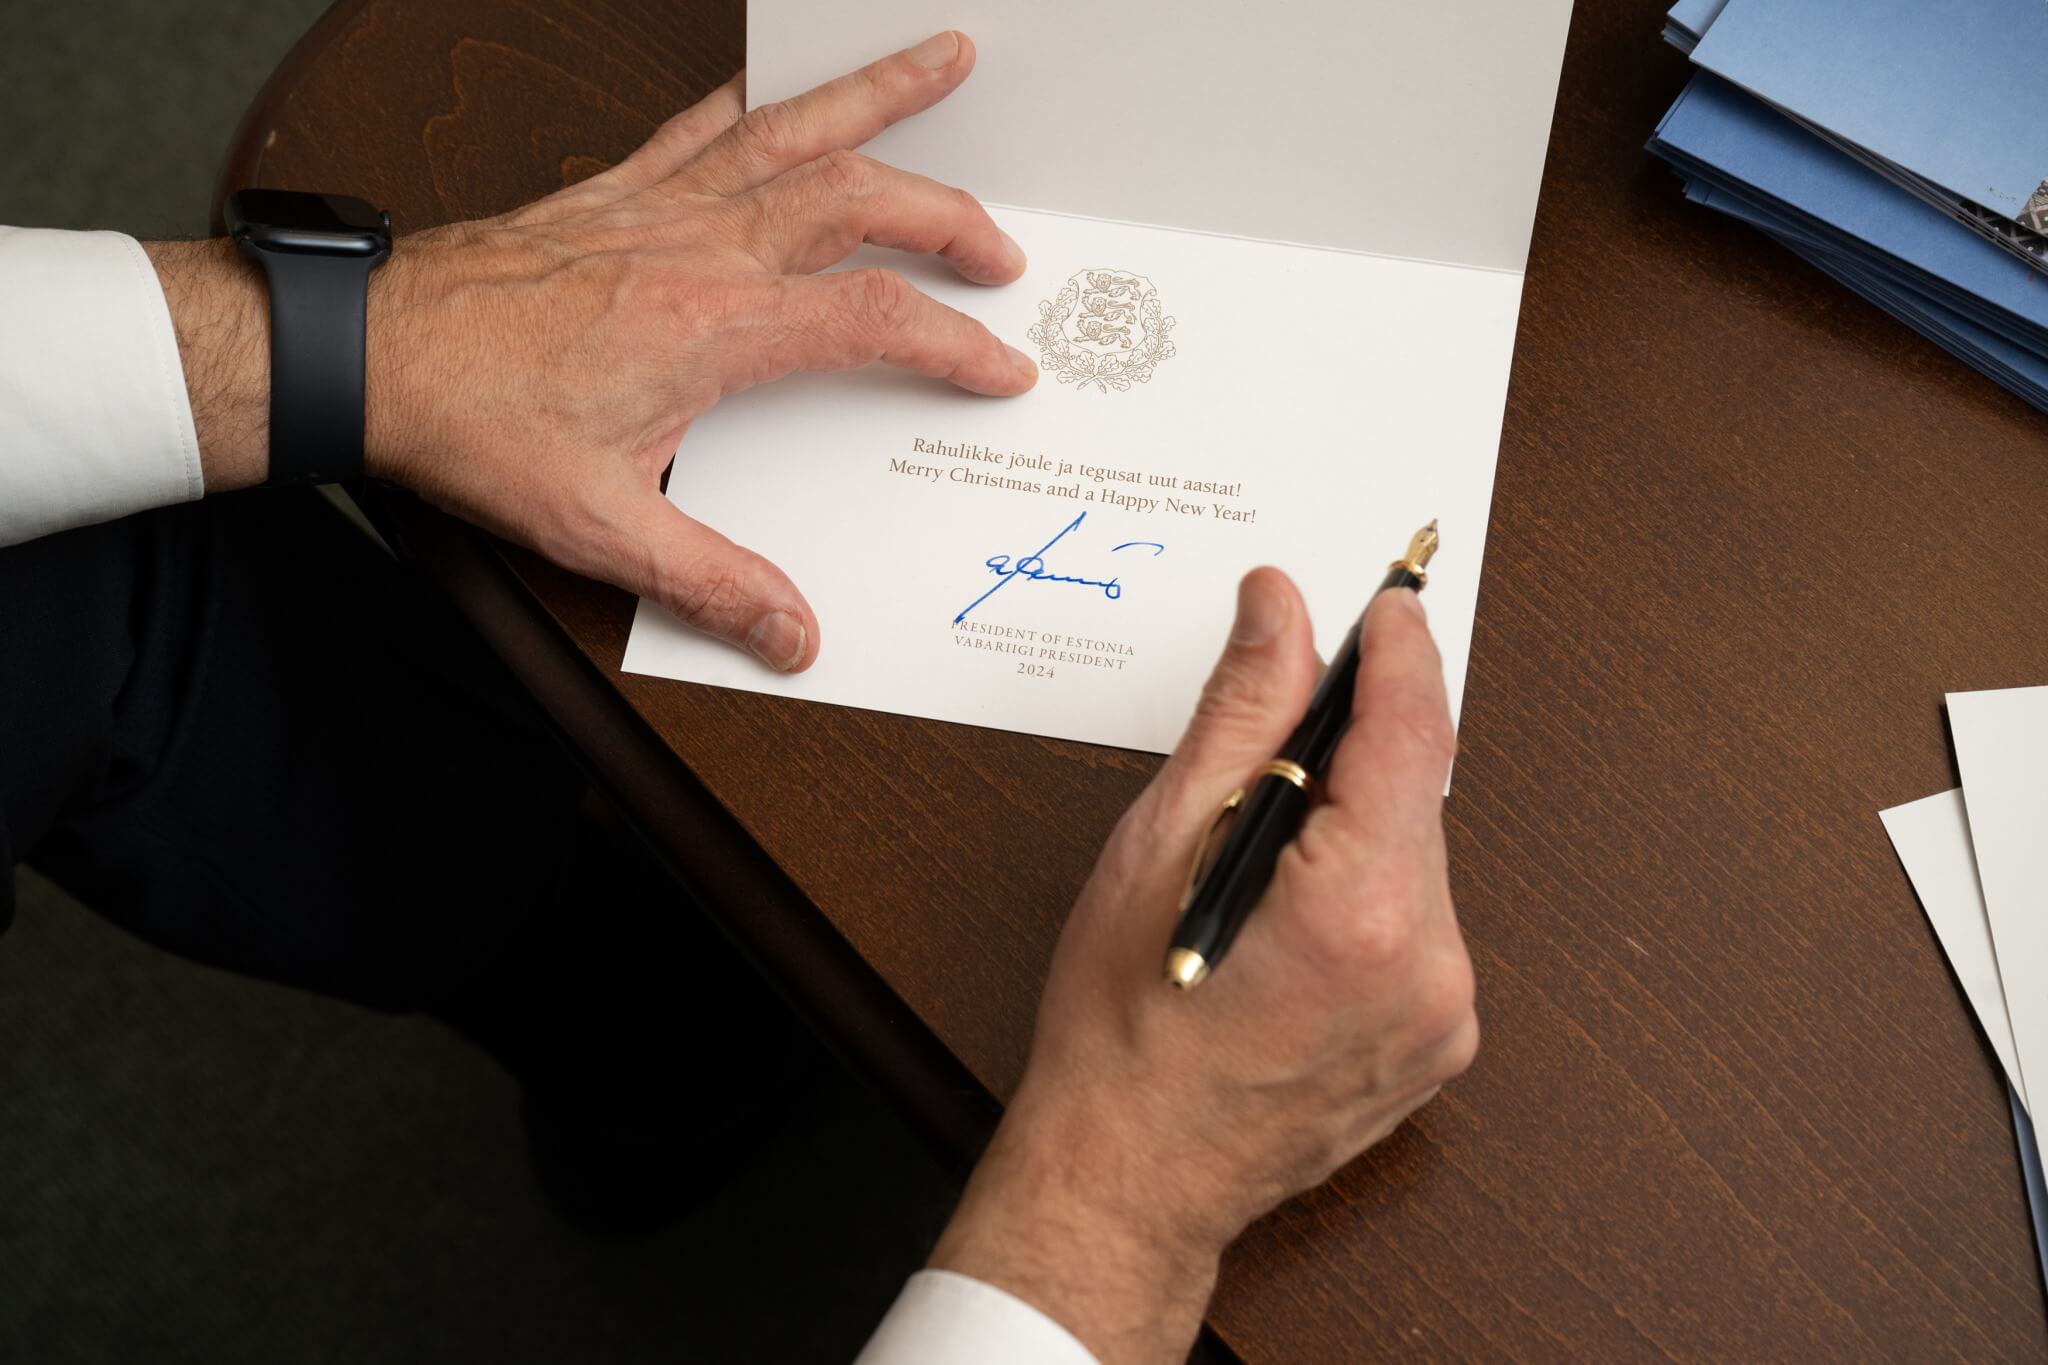 Rahulikke jõule ja tegusat uut aastat!
Merry Christmas and a Happy New Year!
PRESIDENT OF ESTONIA
VABARIIGI PRESIDENT
2024